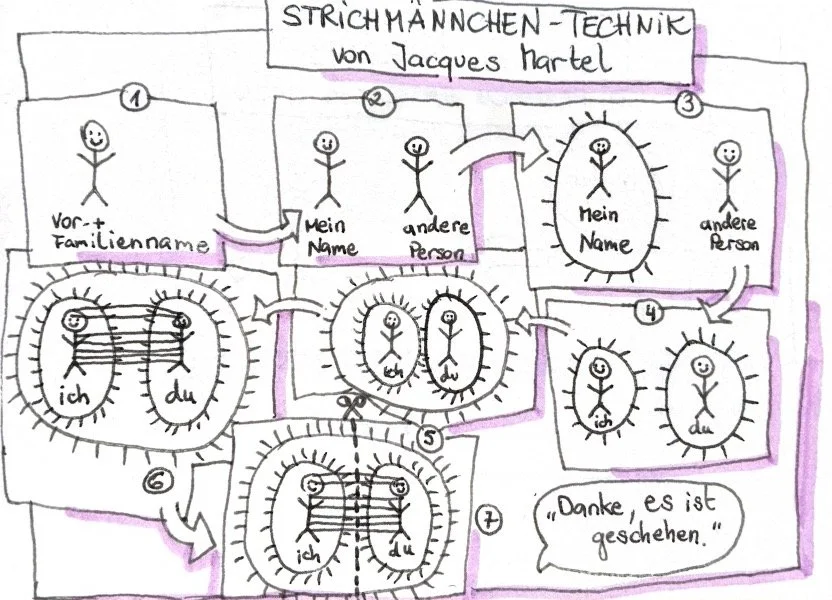 STRICHMÄNNCHEN-TECHNIK
von Jacques Martel
1
Vor-+
Familienname
2
Mein
Name
andere
Person
3
Mein
Name
andere
Person
4
ich
du
5
ich
du
6
ich
du
7
ich
du
„Danke, es ist
geschehen."